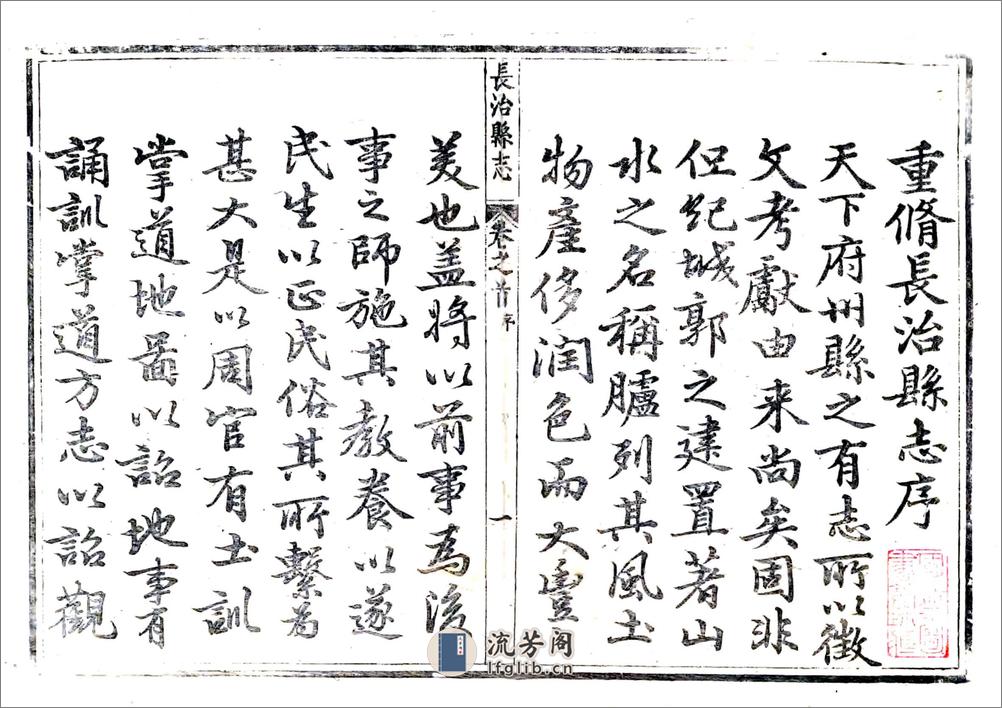 重脩長治縣志序
天下府州縣之有志所以徵
文考獻由来尚矣固非
但紀城郭之建置著山
水之名稱臚列其風土
物產侈润色而大豐
長治縣志
卷之首
序
一
美也盖將以前事爲後
事之師施其教養以遂
民生以正民俗其所繫爲
甚大是以周官有土訓
掌道地圖以詔地事有
誦訓掌道方志以詔觀
流芳阁
lfglib.cn